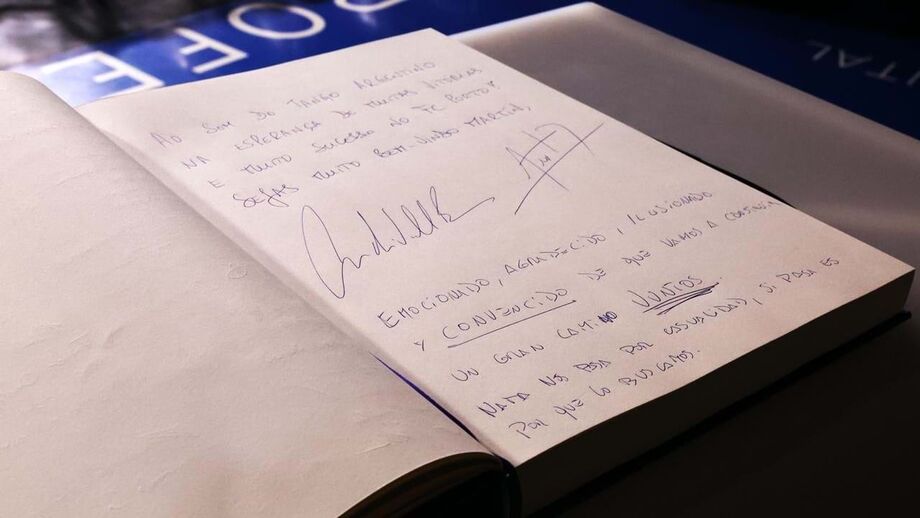 DOFE
ITAL
AO SOM DO TANGO ARGENTINO
NA ESPERANÇA DE MUITAS VITÓRIAS
E MUITO SUCESSO NO FC PORTO!
SEJAS MUITO BEM-VINDO MARTÍN,
EMOCIONADO, AGRADECIDO, ILUSIONADO
Y CONVENCIDO DE QUE VAMOS A CONSTRUIR
UN GRAN CAMINO JUNTOS.
NADA NOS PASA POR CASUALIDAD, SI PASA ES
POR QUE LO BUSCAMOS.